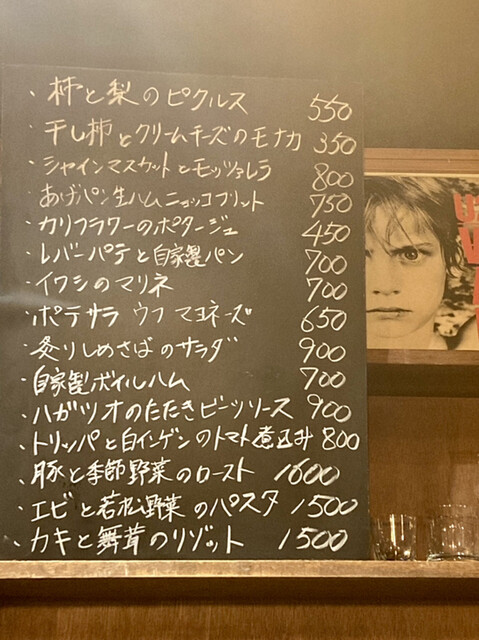 ・柿と梨のピクルス 550
・干し柿とクリームチーズのモナカ 350
・シャインマスカットとモッツァレラ 800
・あげパン生ハムニョッコフリット 750
・カリフラワーのポタージュ 450
・レバーパテと自家製パン 700
・イワシのマリネ 700
・ポテサラ ウフ マヨネーズ 650
・炙りしめさばのサラダ 900
・自家製ボイルハム 700
・ハガツオのたたきビーツソース 900
・トリッパと白インゲンのトマト煮込み 800
・豚と季節野菜のロースト 1600
・エビと若松野菜のパスタ 1500
・カキと舞茸のリゾット 1500